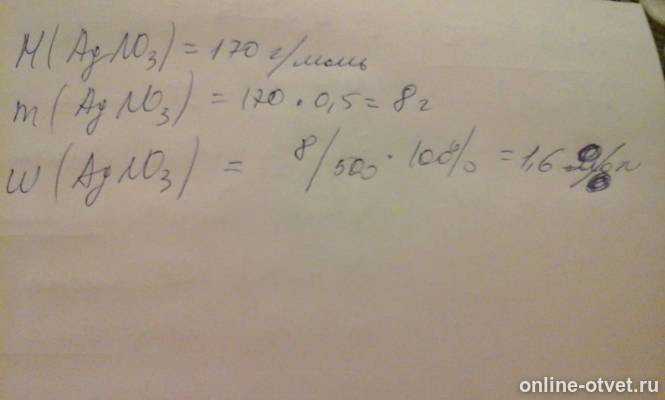 M(AgNO₃) = 170 г/моль
m(AgNO₃) = 170 · 0,5 = 8 г
W(AgNO₃) = 8/500 · 100% = 1,6 %
online-otvet.ru